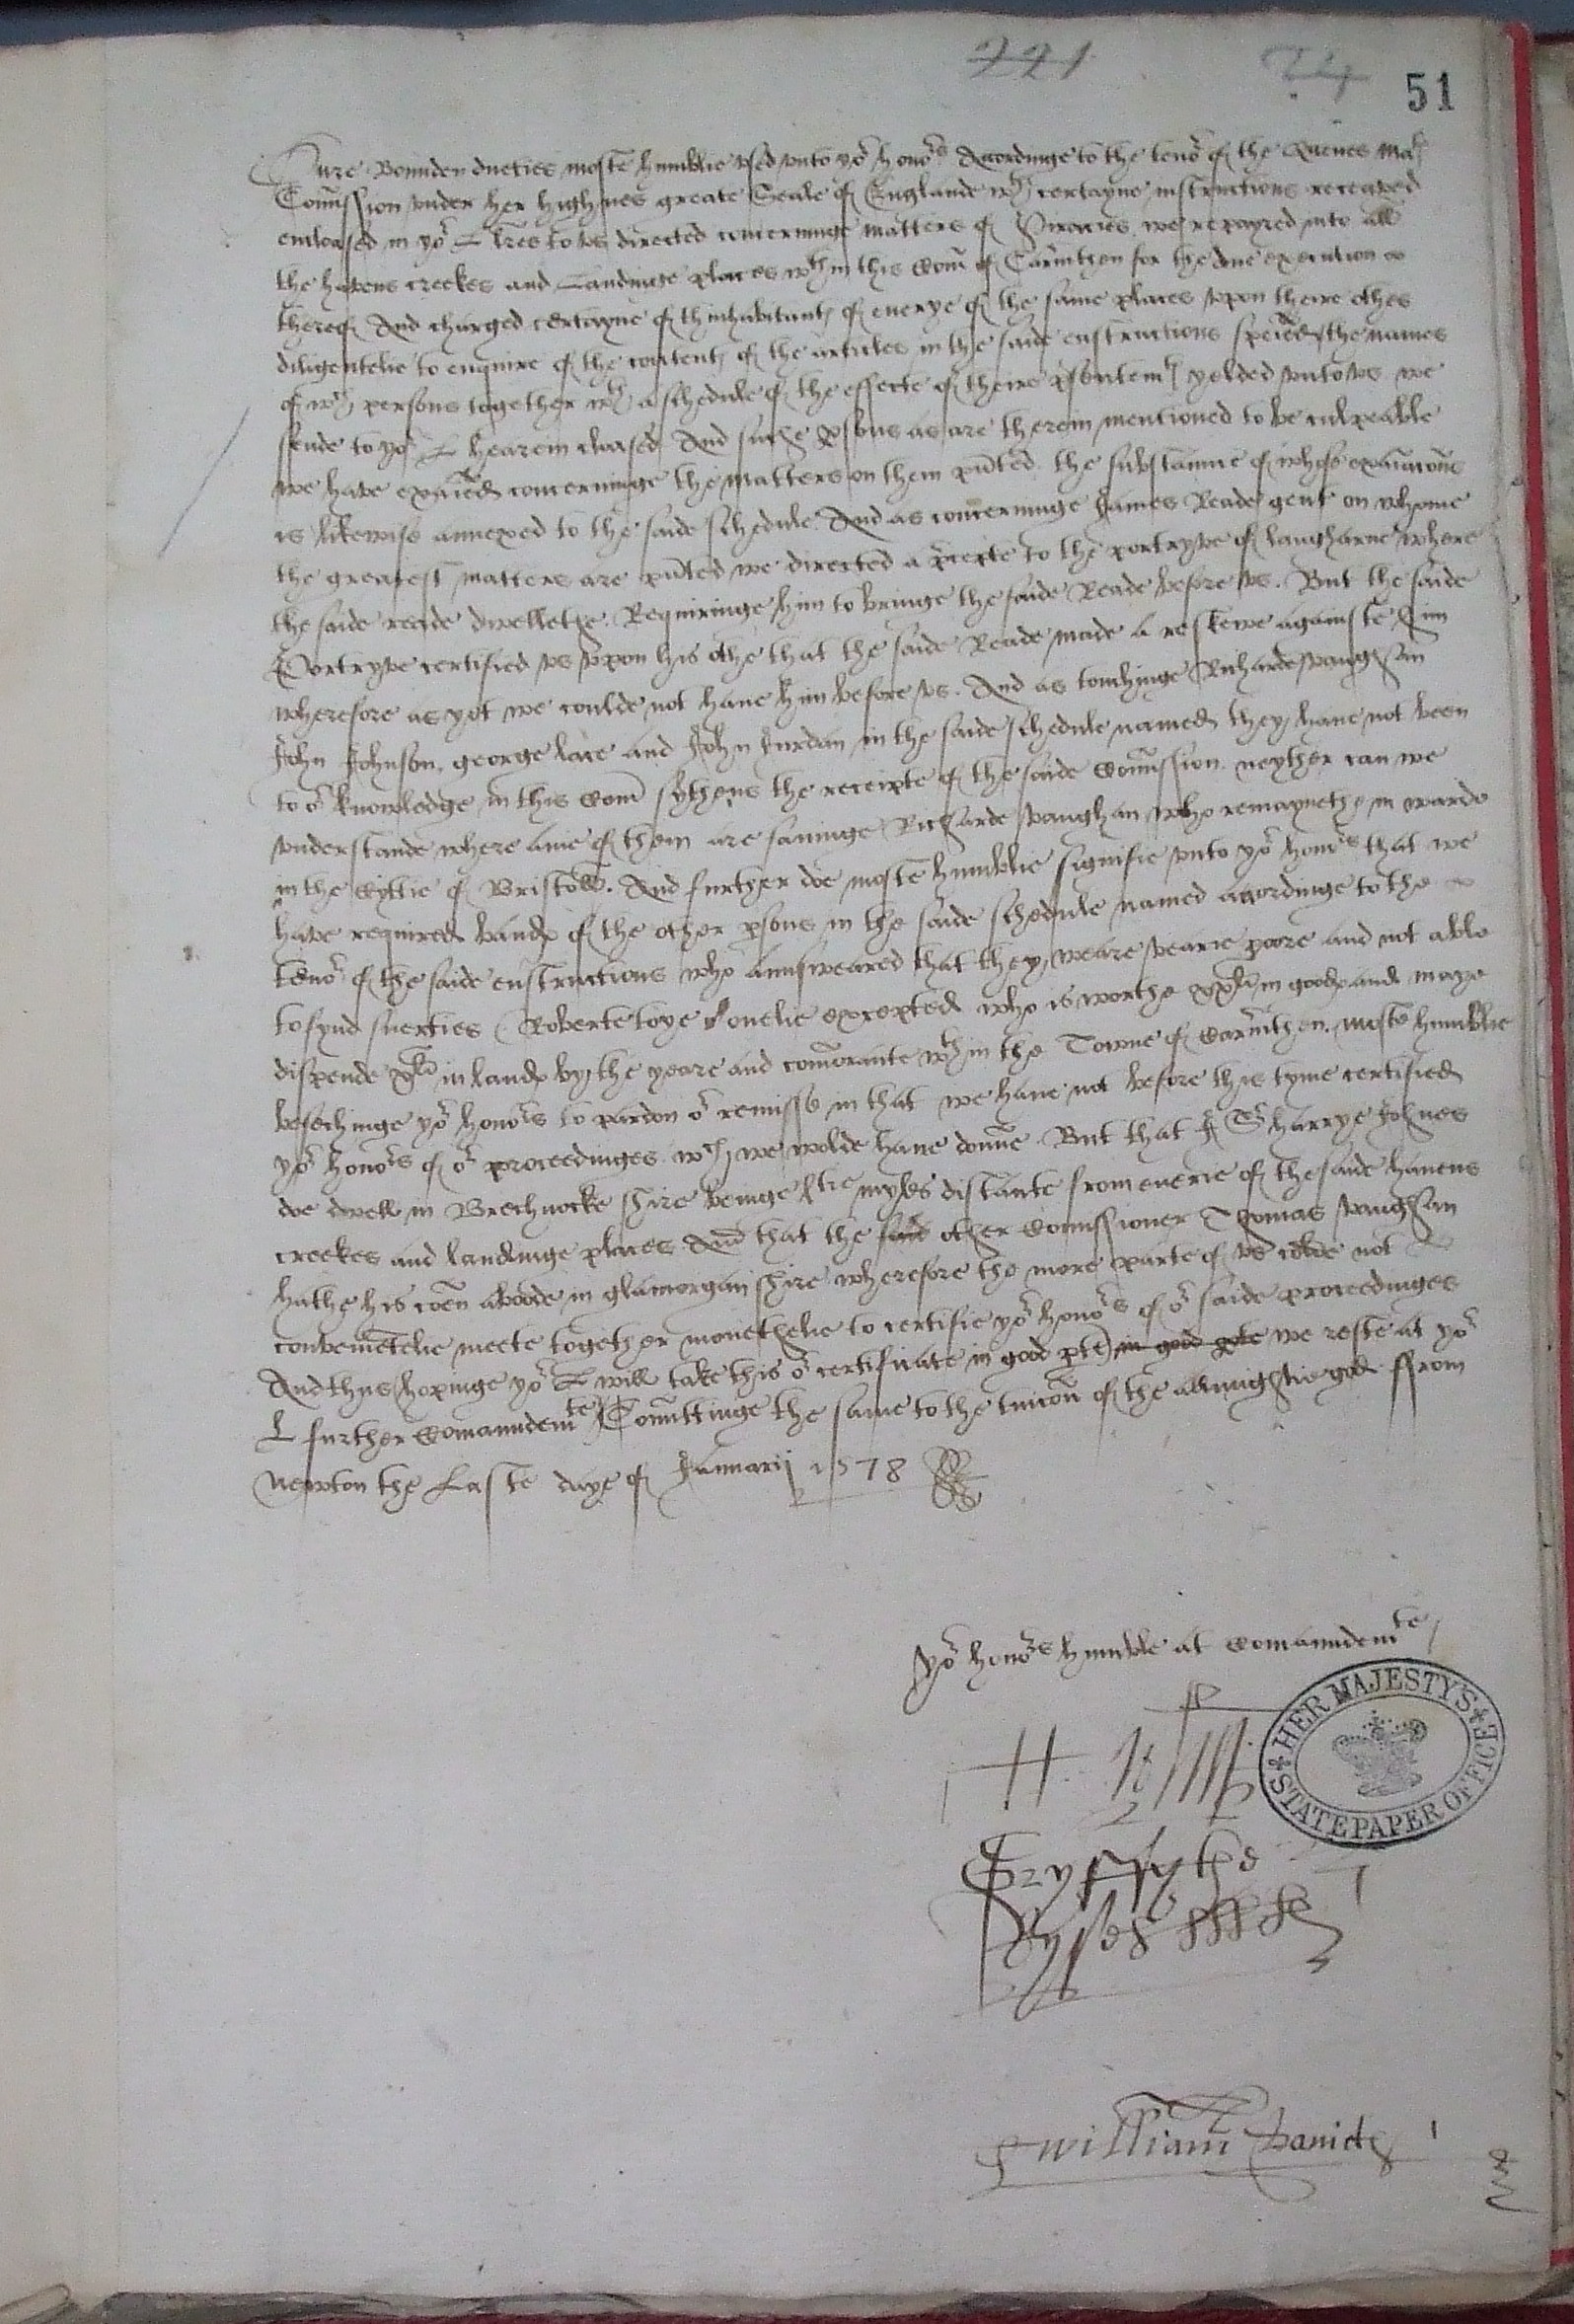 221 24 51
Oure Bounden dueties moste humblie used unto yor honors Accordinge to the tenor of the Quenes Mats
Comission under her highnes greate Seale of Englande wth certayne instructions receaved
enclosed in yor L lres to us directed concerninge matters of Piracies, we repayred into all
the havens creekes and Landinge places wthin this Com of Carmthen for the due execution
thereof And charged certayne of thinhabitants of everye of the same places uppon theire othes
diligentelie to enquire of the contents of the articles in the saide enstructions specified the names
of wch persons together wth a schedule of the effecte of theire psentemts yelded unto us we
sende to yor L hearein closed And suche psons as are therein mentioned to be culpeable
we have examed concerninge the matters on them pnted the substaunce of whose examacons
is likewise annexed to the saide schedule And as concerninge James Reade gent on whome
the greatest matters are pnted we directed a precepte to the portryve of laugharne where
the saide reade dwellethe Requiringe him to bringe the saide Reade before us. But the saide
Portryve certified us uppon his othe that the saide Reade made a reskewe againste him
wherefore as yet we coulde not have him before us. And as touchinge Richarde vaughan
John Johnson, george lace and John Jurdan in the saide schedule named they have not been
to or knowledge in this Com sythens the receipte of the saide Comission neyther can we
understande where anie of them are savinge Richarde vaughan who remaynethe in warde
in the Cyttie of Bristoll. And further doe moste humblie signifie unto yor honors that we
have required bands of the other psons in the saide schedule named accordinge to the
tenor of the saide enstructions who annsweared that they weare vearie poore and not able
to fynd suerties Roberte toye onelie excepted who is worthe xxli in goods and maye
dispende xli in lands by the yeare and comorante wthin the Towne of Carmthen. moste humblie
besechinge yor honors to pardon or remisse in that we have not before this tyme certified
yor honors of or proceedinges wch we wolde have donne But that I Sr harrye Johnes
doe dwell in Brechnocke shire beinge ltie myles distante from everie of the saide havens
creekes and landinge places And that the said other Comissioner Thomas vaughan
hathe his coen aboode in glamorgan shire wherefore the more parte of us colde not
convenietelie meete together monethelie to certifie yor honors of or saide proceedinges
And thus hopinge yor L will take this or certificate in good pte in good pte we reste at yor
L further Comaundemte Comittinge the same to the tuicon of the allmightie god ffrom
Newton the Laste daye of Januarij 1578
Yor honors humble at Comaundemte
Gryffythe
Ryse
william Davids
HER MAJESTY'S STATE PAPER OFFICE